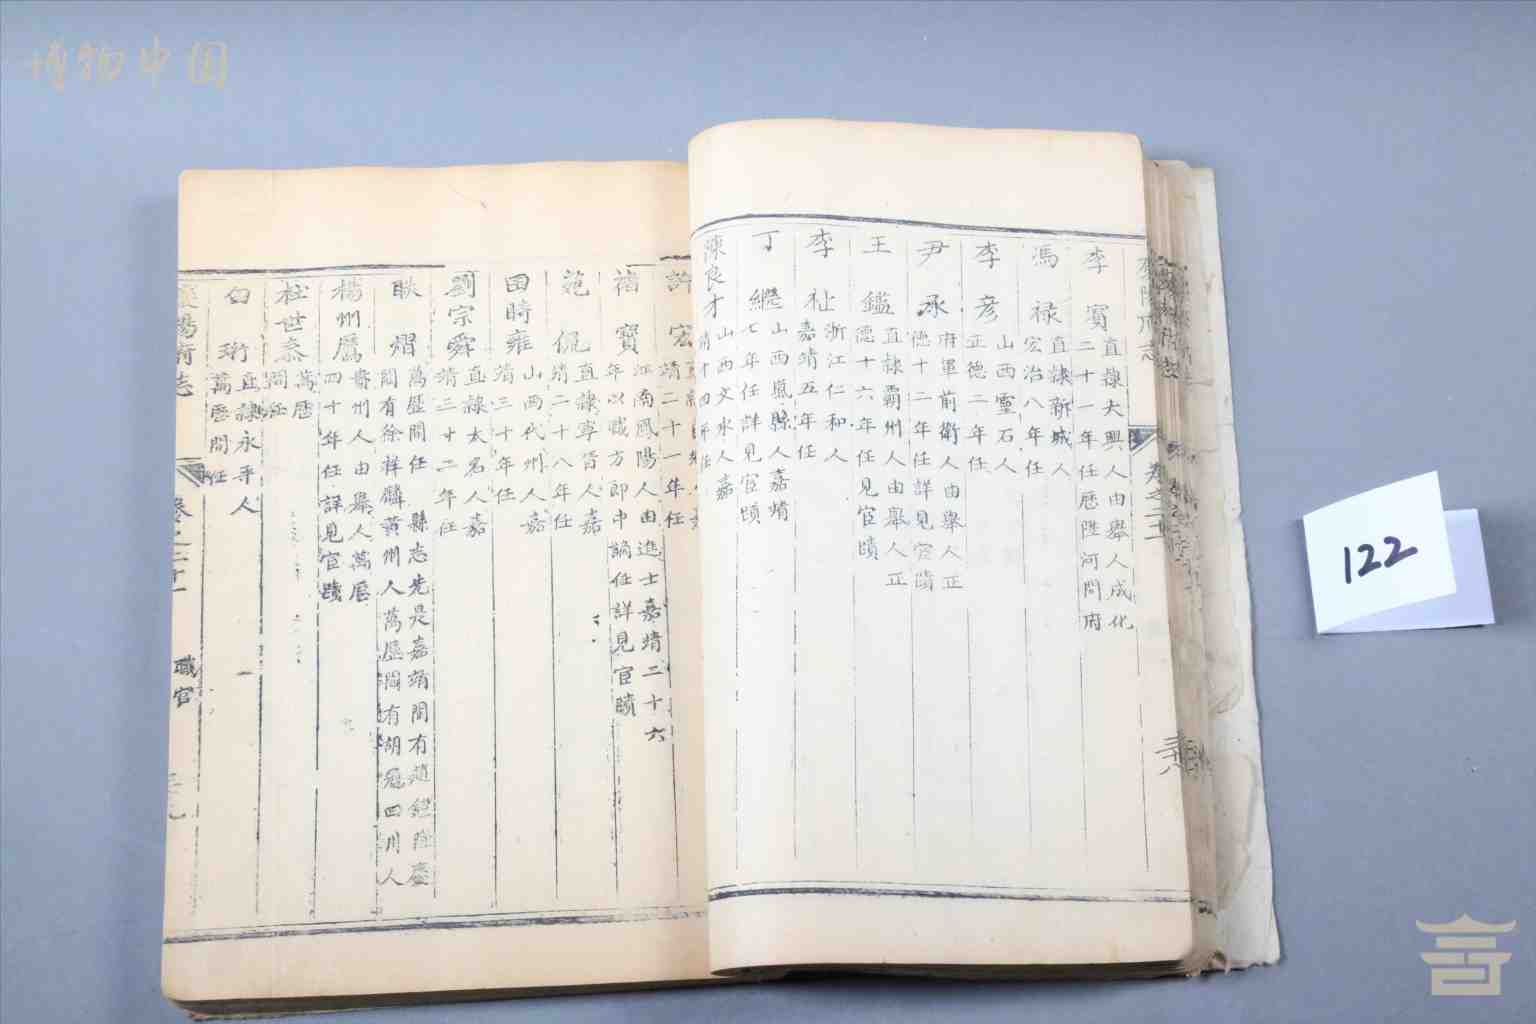 博物中国
李寶 直隸大興人由舉人成化
二十一年任歷陞河間府
馮禄 直隸新城人
宏治八年任
李彦 山西靈石人
正德二年任
尹承 府軍前衛人由舉人正
德十二年任詳見宦蹟
王鑑 直隸霸州人由舉人正
德十六年任見宦蹟
李祉 浙江仁和人
嘉靖五年任
丁繼 山西嵐縣人嘉靖
七年任詳見宦蹟
陳良才 山西文水人嘉
靖十四年任
許宏
靖二十一年任
褚寶 江南鳳陽人由進士嘉靖二十六
年以職方郎中謫任詳見宦蹟
范侃 直隸寧晋人嘉
靖二十八年任
田時雍 山西代州人嘉
靖三十年任
劉宗舜 直隸太名人嘉
靖三十二年任
耿熠 萬歷間任 縣志先是嘉靖間有趙鎧隆慶
間有徐祥麟黄州人萬歷間有胡冠四川人
楊州鷹 貴州人由舉人萬歷
四十年任詳見宦蹟
杜世泰 萬歷
間任
白珩 直隸永平人
萬歷間任
襄陽府志 卷之二十 職官
122